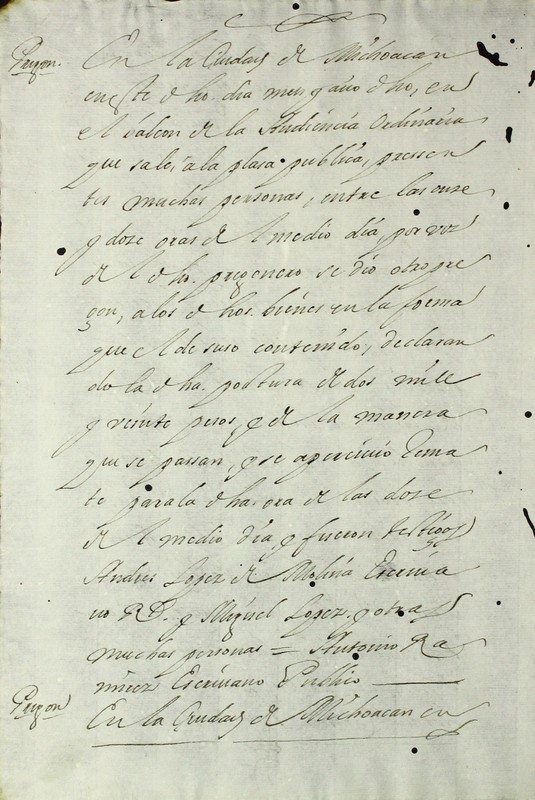 Pregon.
En la Ciudad de Michoacan
en este dho. dia mes y año dho, en
el balcon de la Audiencia Ordinaria
que sale, a la plasa publica, presen
tes muchas personas, entre las onze
y doze oras de el medio dia, por voz
de el dho. pregonero se dio otro pre
gon, a los dhos. bienes en la forma
que el de suso contenido, declaran
do la dha. postura de dos mill
y veinte pesos, y de la manera
que se passan, y se apercivio Rema
te para la dha. ora de las doze
de el medio dia y fueron testigos
Andres Lopez de Molina Escriva
no Rl. y Miguel Lopez. y otras
muchas personas = Antonio Ra
mirez Escrivano Publico
Pregon
En la Ciudad de Michoacan en